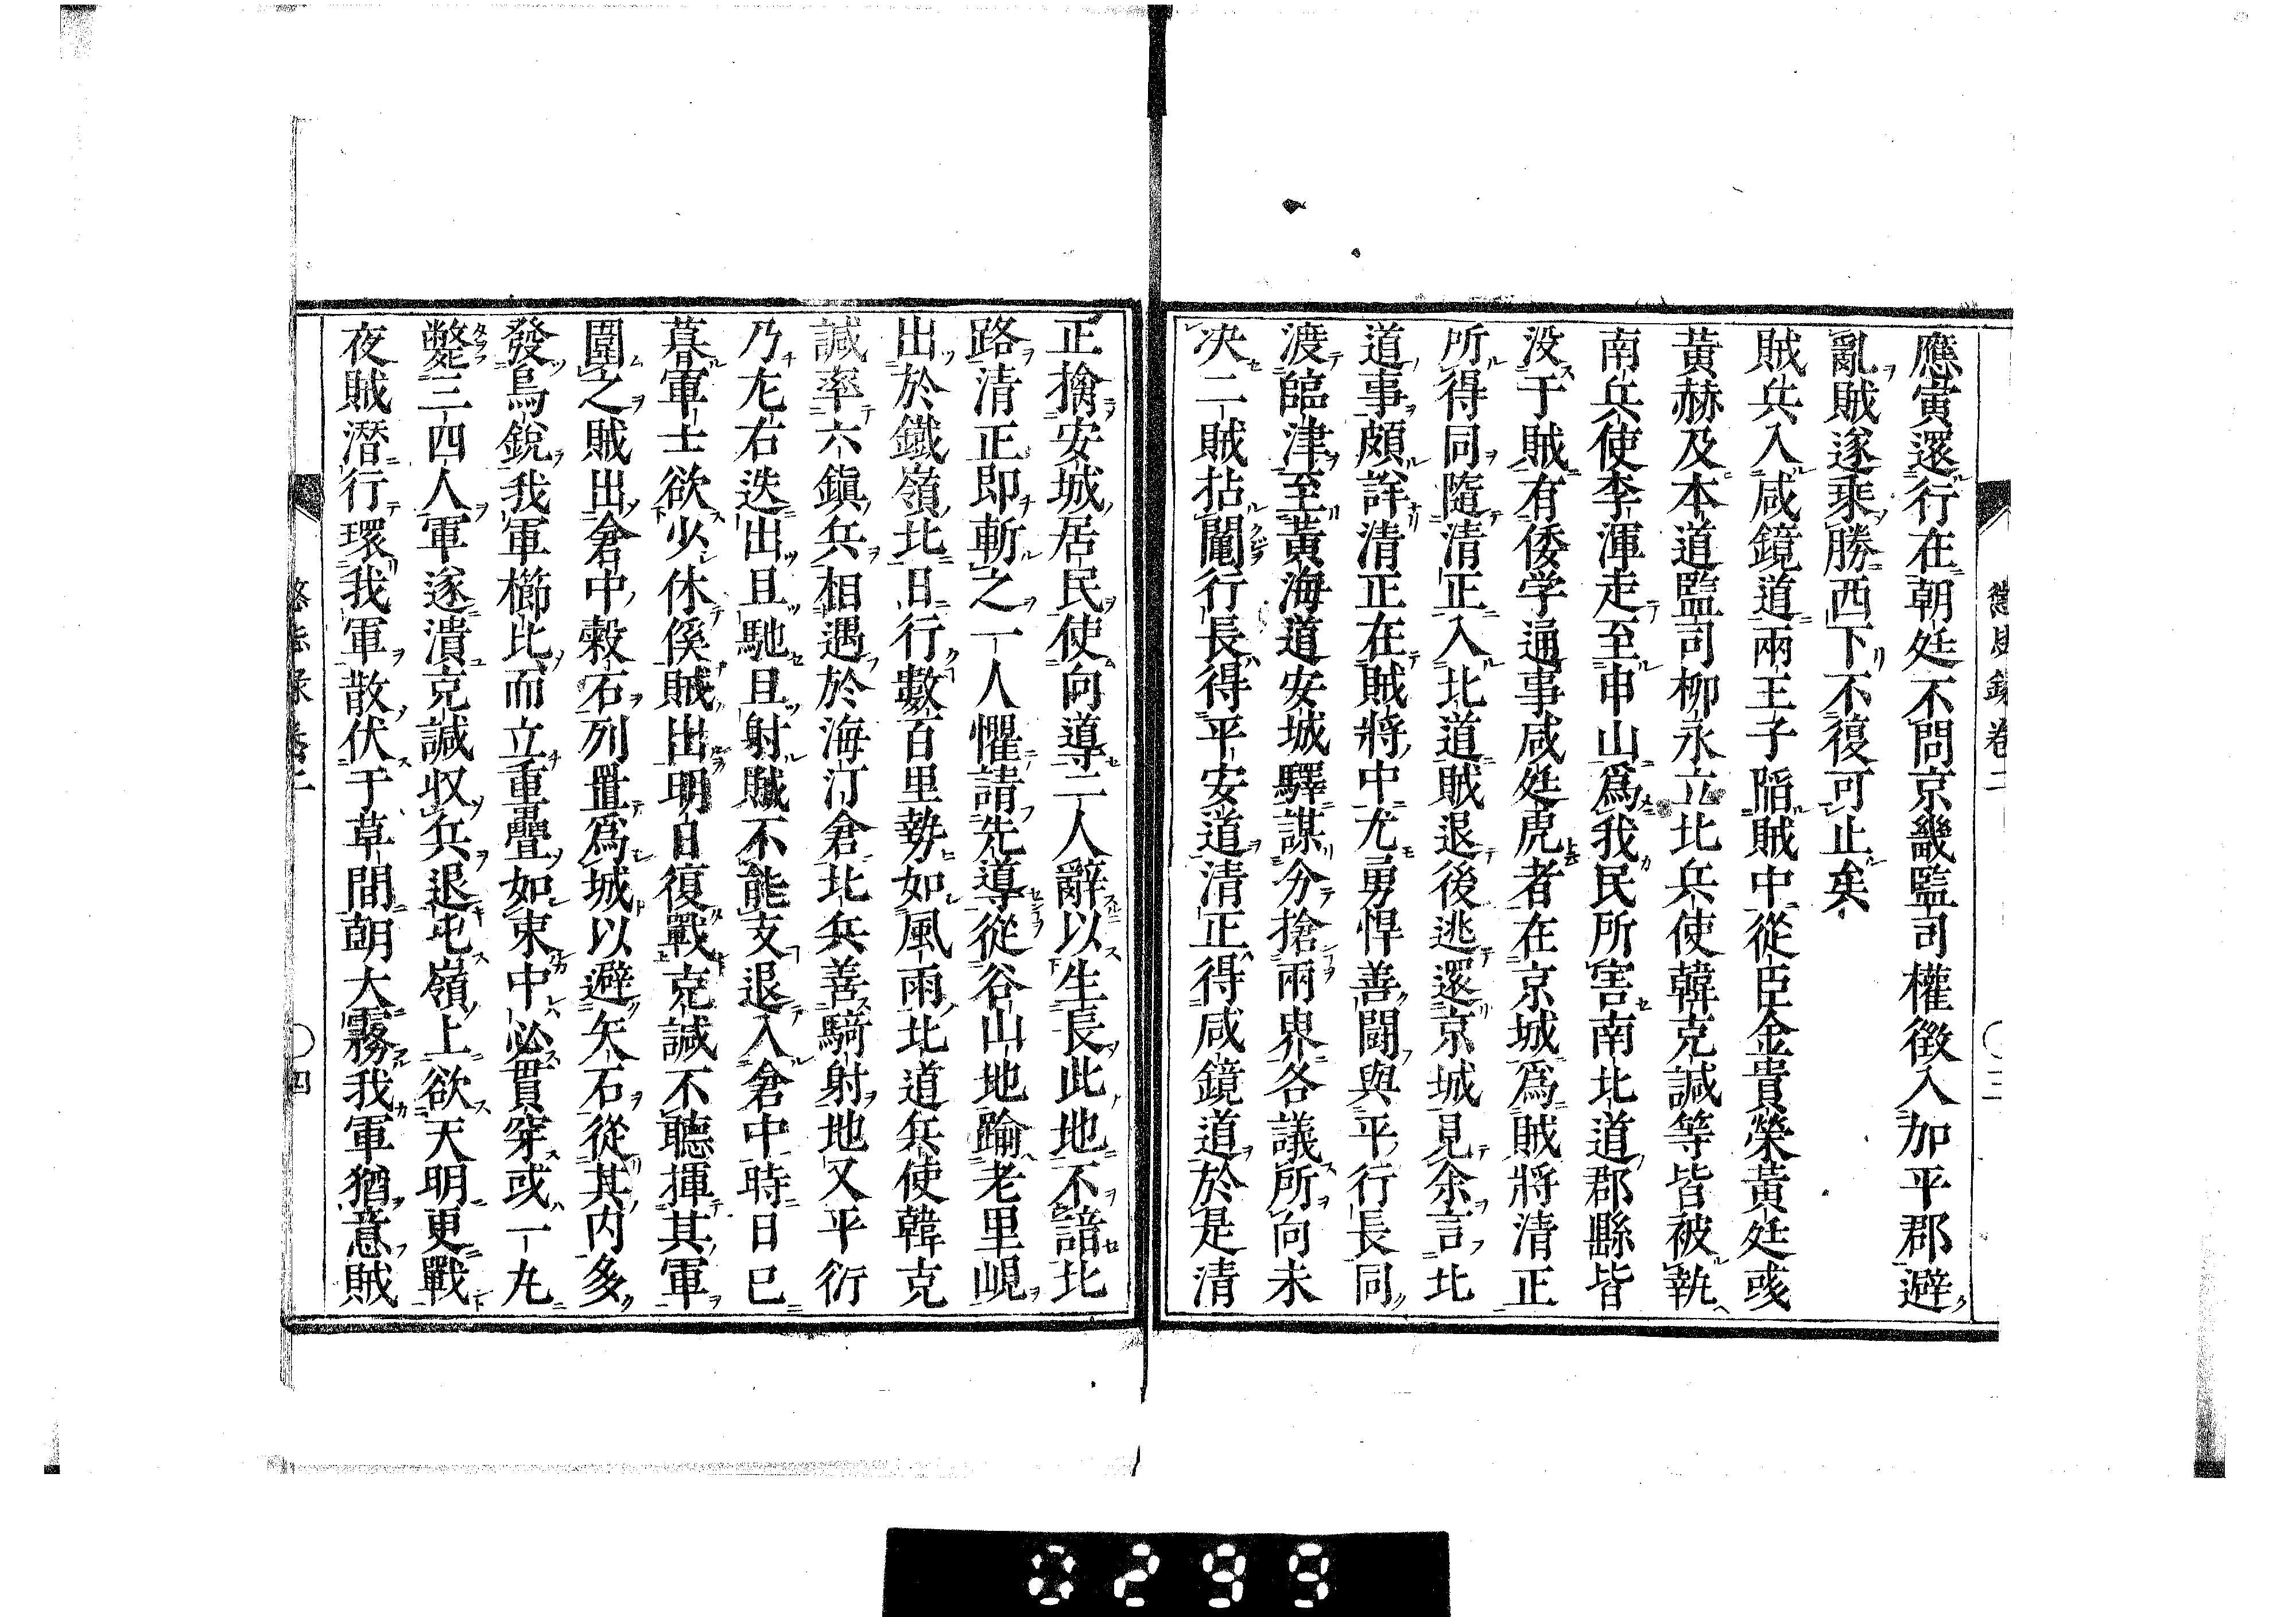 懲毖録卷二
三
應寅還行在朝廷不問京畿監司權徴入加平郡避
亂賊遂乘勝西下不復可止矣
賊兵入咸鏡道兩王子陷賊中從臣金貴榮黃廷彧
黃赫及本道監司柳永立北兵使韓克諴等皆被執
南兵使李渾走至甲山爲我民所害南北道郡縣皆
没于賊有倭学通事咸廷虎者在京城爲賊將清正
所得同隨清正入北道賊退後逃還京城見余言北
道事頗詳清正在賊將中尤勇悍善鬪與平行長同
渡臨津至黃海道安城驛謀分搶兩界各議所向未
决二賊拈鬮行長得平安道清正得咸鏡道於是清
正擒安城居民使向導二人辭以生長此地不諳北
路清正即斬之一人懼請先導從谷山地踰老里峴
出於鐵嶺北日行數百里勢如風雨北道兵使韓克
諴率六鎭兵相遇於海汀倉北兵善騎射地又平衍
乃左右迭出且馳且射賊不能支退入倉中時日已
暮軍士欲少休俟賊出明日復戰克諴不聽揮其軍
圍之賊出倉中穀石列置爲城以避矢石從其内多
發鳥銃我軍櫛比而立重疊如束中必貫穿或一丸
斃三四人軍遂潰克諴収兵退屯嶺上欲天明更戰
夜賊潛行環我軍散伏于草間朝大霧我軍猶意賊
四
0299